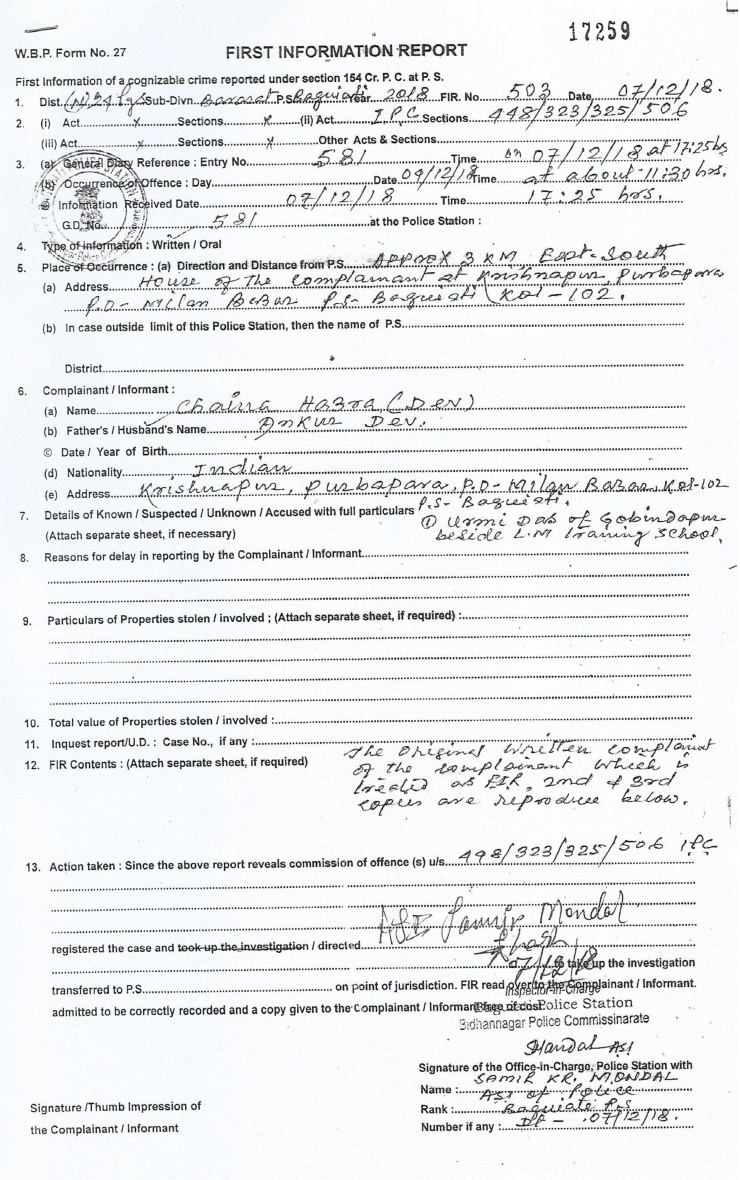 17259
W.B.P. Form No. 27 FIRST INFORMATION REPORT
First Information of a cognizable crime reported under section 154 Cr. P. C. at P. S.
1. Dist. (N) 24 Pgs Sub-Divn. Barasat P.S. Baguiati Year 2018 FIR. No. 503 Date 07/12/18.
2. (i) Act x Sections x (ii) Act I.P.C Sections 448/323/325/506
(iii) Act x Sections x Other Acts & Sections
3. (a) General Diary Reference : Entry No. 581 Time on 07/12/18 at 17:25 hrs
(b) Occurrence of Offence : Day Date 04/12/18 Time at about 11:30 hrs.
Information Received Date 07/12/18 Time 17:25 hrs.
G.D. No. 581 at the Police Station :
4. Type of information : Written / Oral
5. Place of Occurrence : (a) Direction and Distance from P.S. Approx 3 KM East-South
(a) Address House of the complainant at Krishnapur, Purbapara
P.O- Milan Bazar P.S- Baguiati Kol-102.
(b) In case outside limit of this Police Station, then the name of P.S.
District
6. Complainant / Informant :
(a) Name Chaina Hazra (Dev)
(b) Father's / Husband's Name Ankur Dev.
© Date / Year of Birth
(d) Nationality Indian
(e) Address Krishnapur, Purbapara, P.O- Milan Bazar, Kol-102
P.S- Baguiati.
7. Details of Known / Suspected / Unknown / Accused with full particulars ① Urmi Das of Gobindapur
(Attach separate sheet, if necessary) beside L.M Training School.
8. Reasons for delay in reporting by the Complainant / Informant
9. Particulars of Properties stolen / involved ; (Attach separate sheet, if required) :
10. Total value of Properties stolen / involved :
11. Inquest report/U.D. : Case No., if any :
12. FIR Contents : (Attach separate sheet, if required) The original written complaint
of the complainant which is
treated as FIR, 2nd & 3rd
copies are reproduce below.
13. Action taken : Since the above report reveals commission of offence (s) u/s. 448/323/325/506 IPC
ASI Samir Mondal
registered the case and took up the investigation / directed
07/12/18 to take up the investigation
transferred to P.S. on point of jurisdiction. FIR read over to the Complainant / Informant.
Inspector-in-Charge
admitted to be correctly recorded and a copy given to the Complainant / Informant free of cost.
Police Station
Bidhannagar Police Commissinarate
Mondal ASI
Signature of the Office-in-Charge, Police Station with
Name : SAMIR KR. MONDAL
ASI of Police
Signature /Thumb Impression of Rank : Baguiati P.S
the Complainant / Informant Number if any : Dt- 07/12/18.